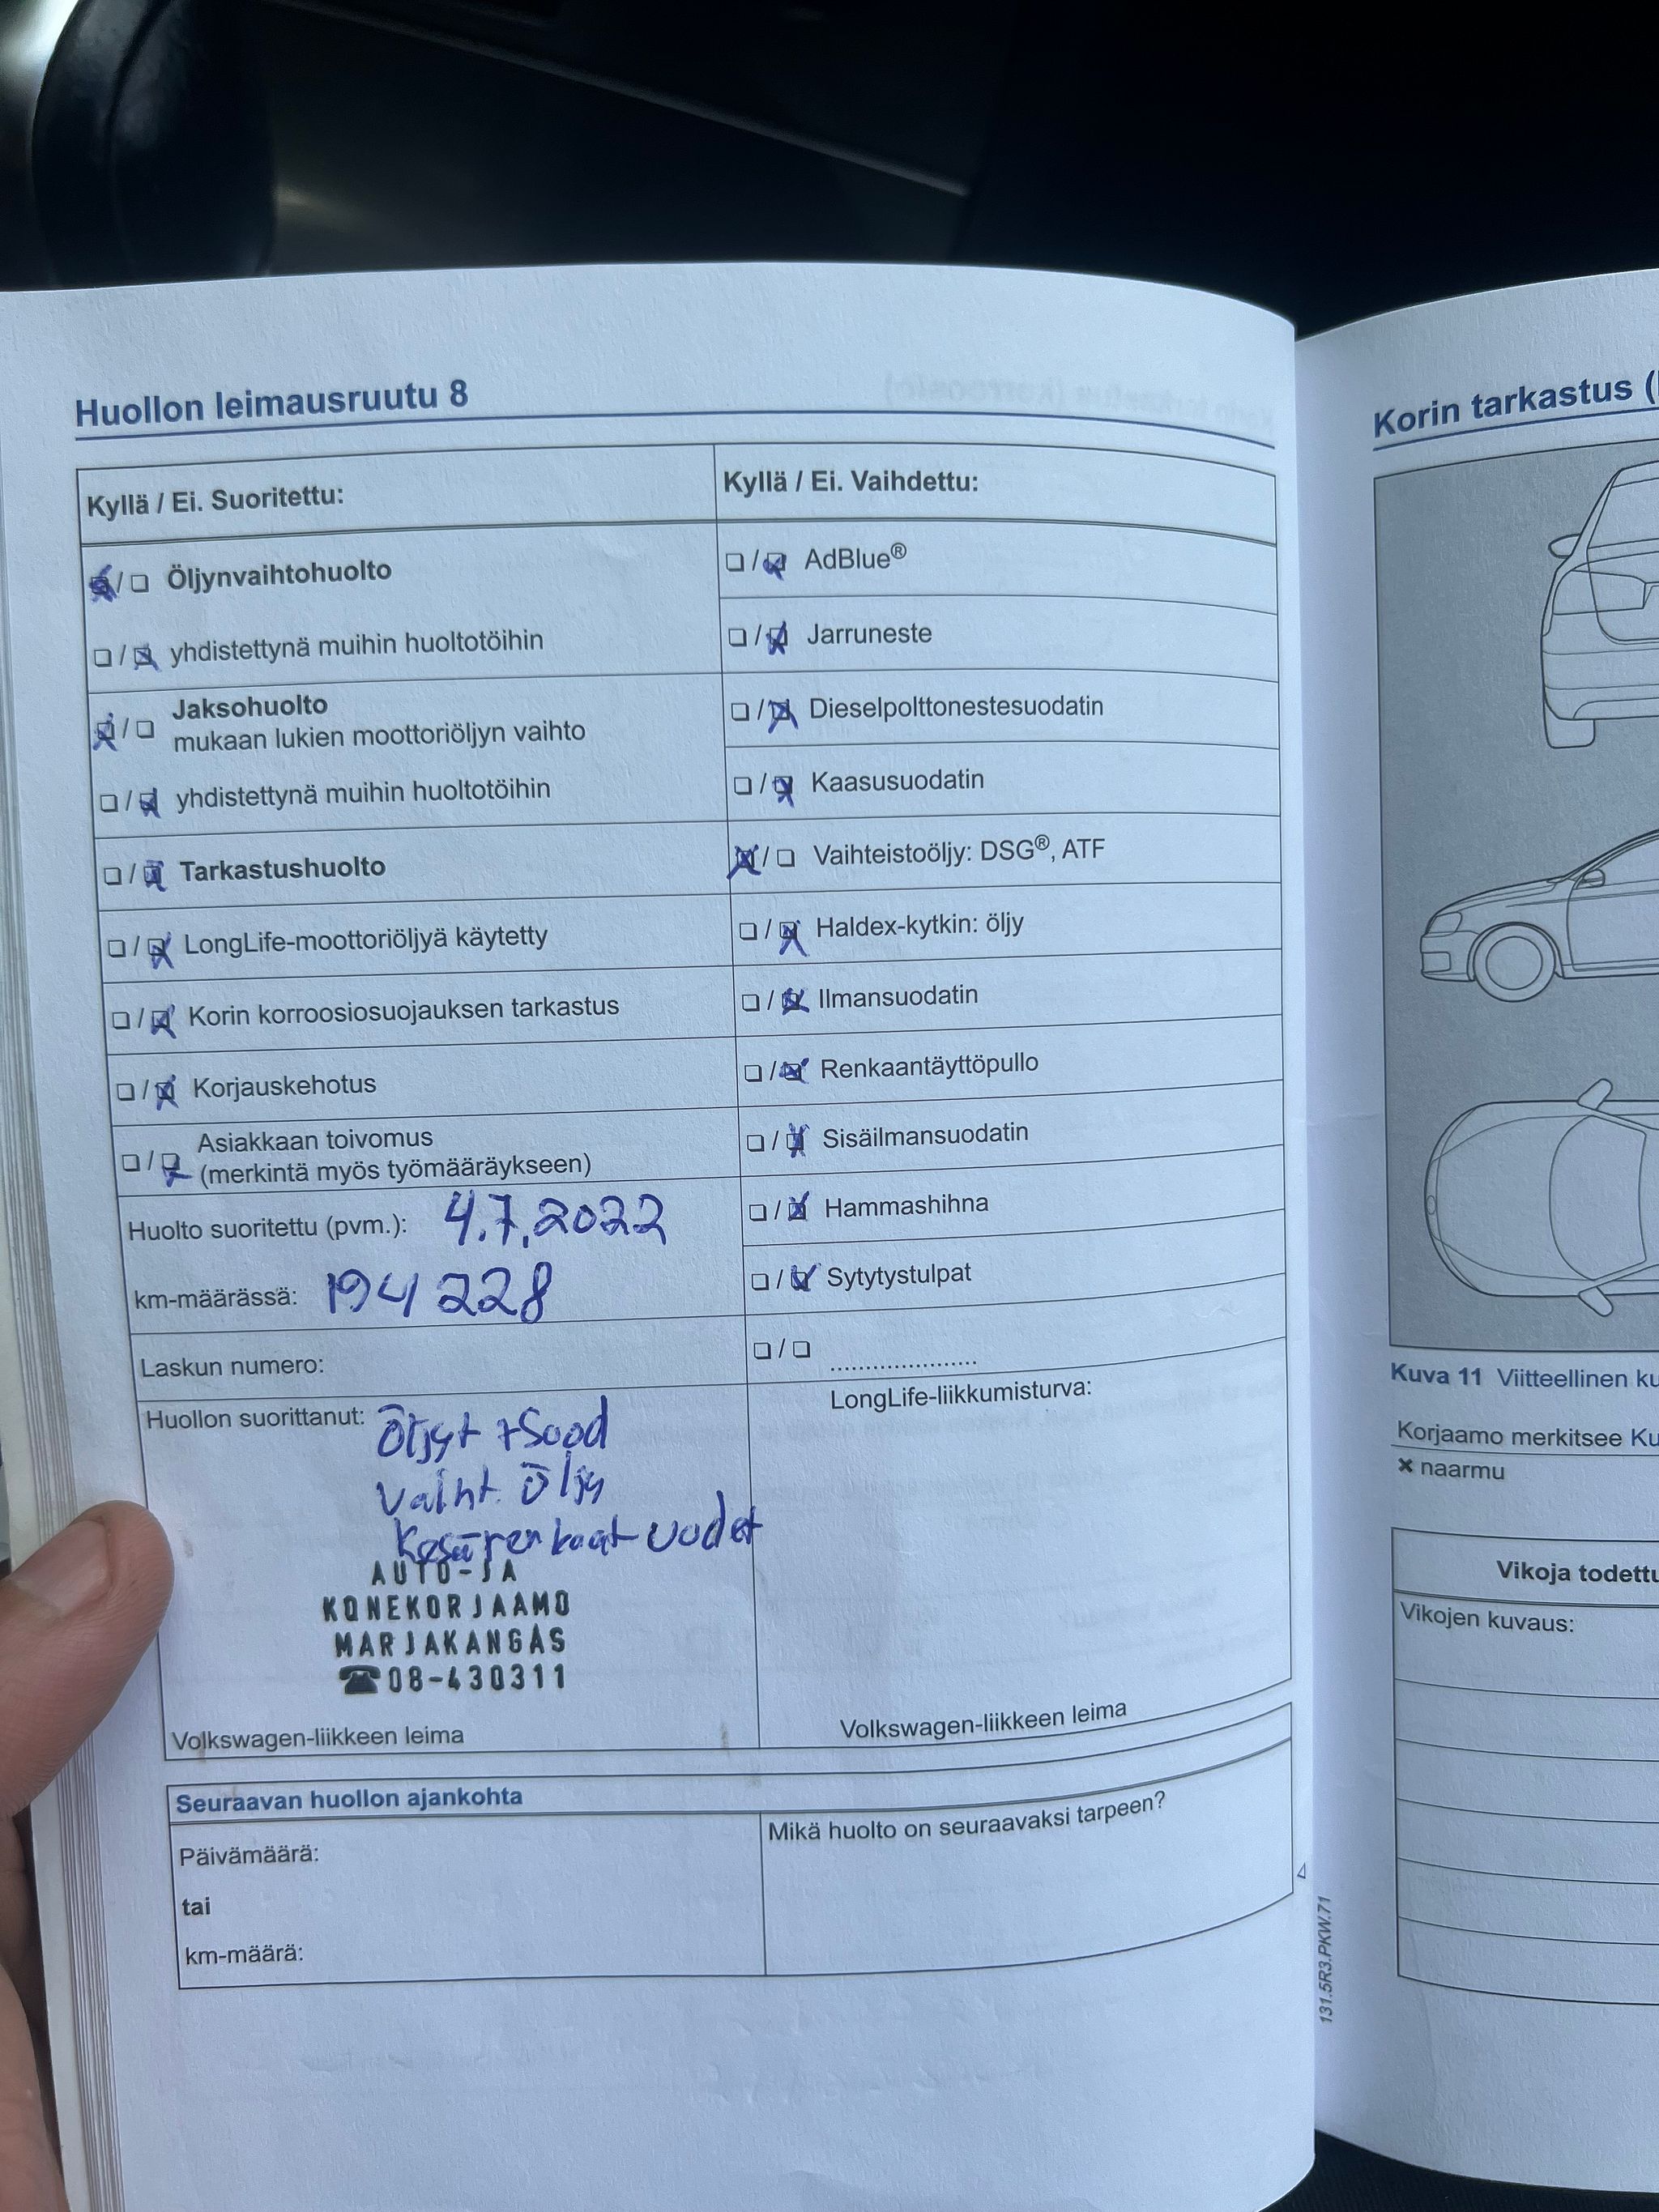 Huollon leimausruutu 8
Kyllä / Ei. Suoritettu:
Öljynvaihtohuolto
yhdistettynä muihin huoltotöihin
Jaksohuolto
mukaan lukien moottoriöljyn vaihto
yhdistettynä muihin huoltotöihin
Tarkastushuolto
LongLife-moottoriöljyä käytetty
Korin korroosiosuojauksen tarkastus
Korjauskehotus
Asiakkaan toivomus
(merkintä myös työmääräykseen)
Huolto suoritettu (pvm.): 4.7.2022
km-määrässä: 194 228
Laskun numero:
Huollon suorittanut: Öljyt + Suod
Vaiht. Öljy
Kesärenkaat uudet
AUTO-JA
KONEKORJAAMO
MARJAKANGAS
☎08-430311
Volkswagen-liikkeen leima
Kyllä / Ei. Vaihdettu:
AdBlue®
Jarruneste
Dieselpolttonestesuodatin
Kaasusuodatin
Vaihteistoöljy: DSG®, ATF
Haldex-kytkin: öljy
Ilmansuodatin
Renkaantäyttöpullo
Sisäilmansuodatin
Hammashihna
Sytytystulpat
....................
LongLife-liikkumisturva:
Volkswagen-liikkeen leima
Seuraavan huollon ajankohta
Päivämäärä:
tai
km-määrä:
Mikä huolto on seuraavaksi tarpeen?
131.5R3.PKW.71
Korin tarkastus (
Kuva 11 Viitteellinen ku
Korjaamo merkitsee Ku
× naarmu
Vikoja todettu
Vikojen kuvaus: